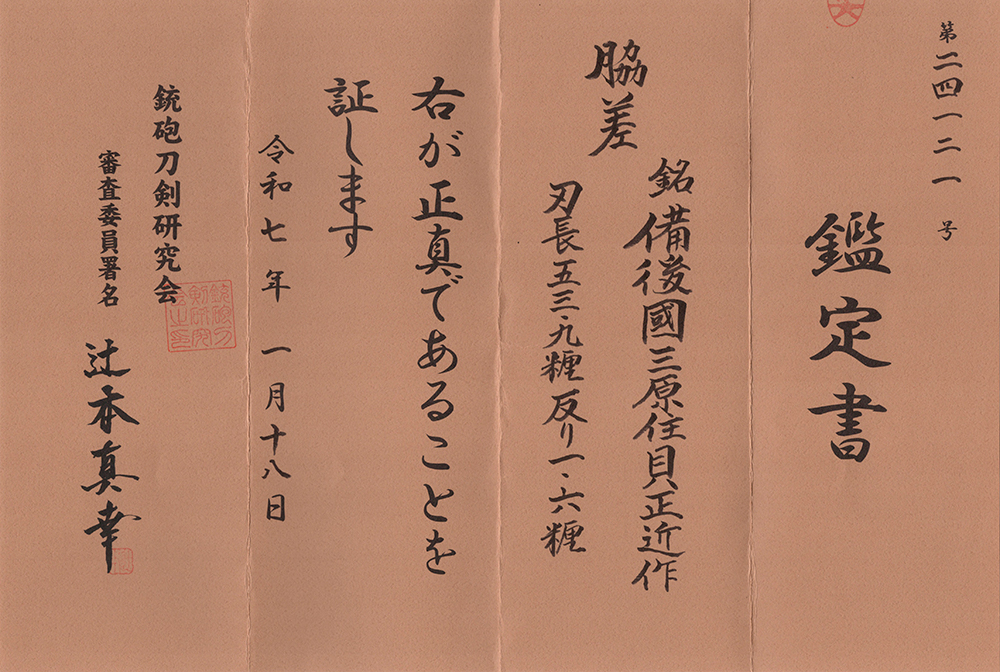 第二四一二一号
鑑定書
脇差
銘備後國三原住貝正近作
刃長五三・九糎反り一・六糎
右が正真であることを
証します
令和七年一月十八日
銃砲刀剣研究会
審査委員署名 辻本真幸